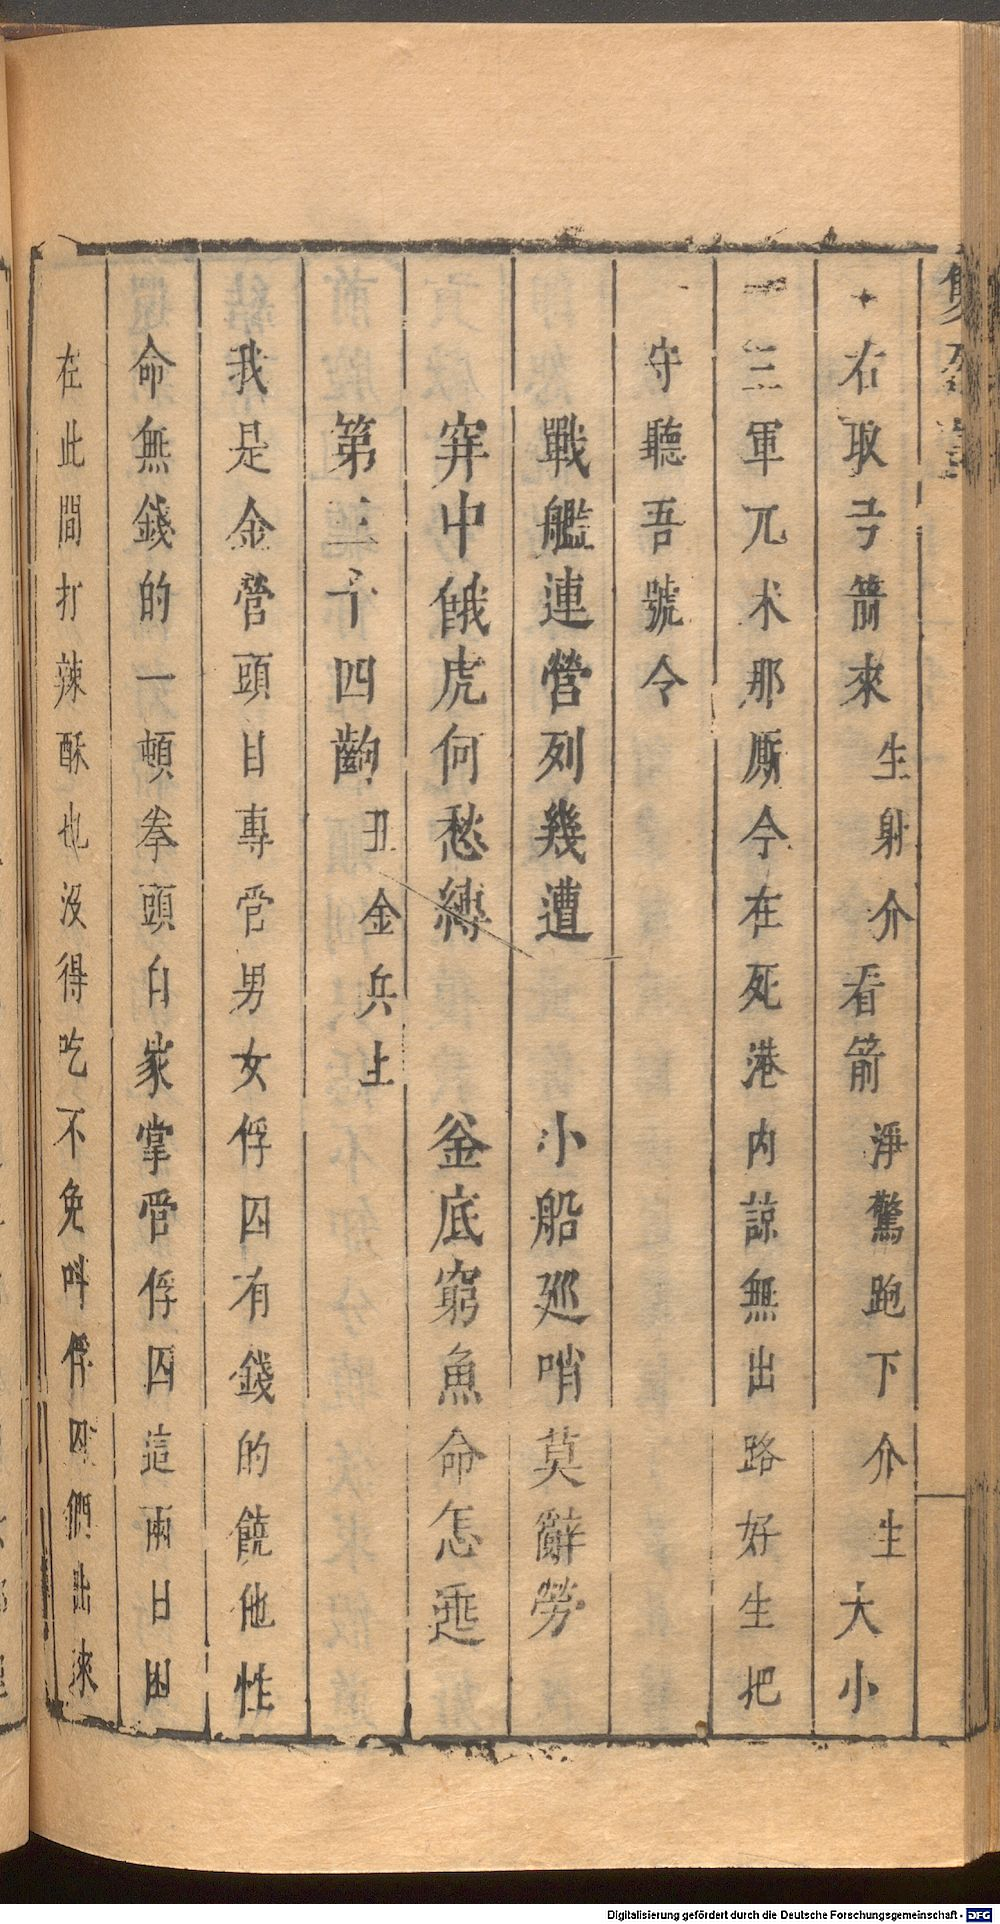 左右取弓箭來生射介看箭淨驚跑下介生大小
三軍兀朮那厮今在死港内諒無出路好生把
守聽吾號令
戰艦連營列幾遭 小船廵哨莫辭勞
穽中餓虎何愁縛 釜底窮魚命怎逃
第三十四齣丑金兵上
我是金營頭目專管男女俘囚有錢的饒他性
命無錢的一頓拳頭自家掌管俘囚這兩日困
在此間打辣酥也没得吃不免叫俘囚們出來
Digitalisierung gefördert durch die Deutsche Forschungsgemeinschaft - DFG